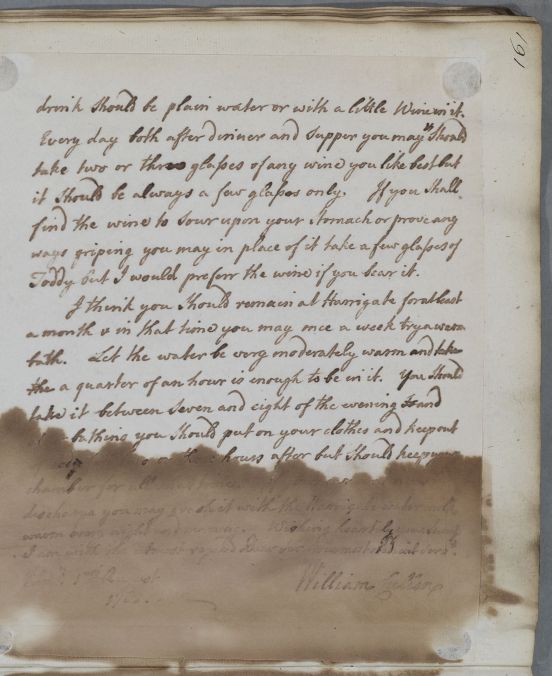 161
drink should be plain water or with a little Wine in it.
Every day both after dinner and supper you may & should
take two or three glasses of any wine you like best but
it should be always a few glasses only. If you shall
find the wine to sour upon your stomach or prove any
ways griping you may in place of it take a few glasses of
Toddy but I would preferr the wine if you bear it.
I think you should remain at Harrigate for at least
a month & in that time you may once a week try a warm
bath. Let the water be very moderately warm and
the a quarter of an hour is enough to be in it. You should
take it between seven and eight of the evening and
bathing you should put on your clothes and keep out
hours after but should keep your
chamber for all
you may give of it with the Harrigate water
warm every night and morning. Wishing heartily
I am with most regard Dear
William Cullen